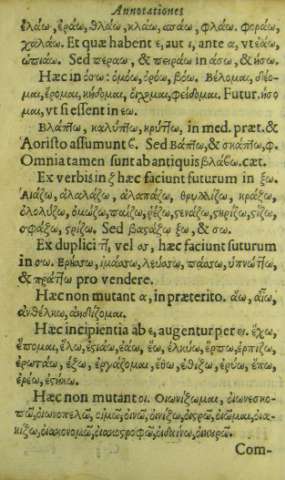 Annotationes
ἐλάω, ἐράω, θλάω, κλάω, σπάω, φλάω. φοράω,
χαλάω. Et quæ habent ε, aut ι, ante α, vt ἐάω,
Sed περάω, & πειράω in άσω, & ήσω.
Hæc in όσω: ὀμόω, ἀρόω, βόω. Βέλομαι, δέο-
μαι, ἔρομαι, κήδομαι, οἴχομαι, φείδομαι. Futur. ήσο
μαι, vt si essent in εω.
Βλάπτω, καλύπτω, κρύπτω, in med. præt. &
Aoristo assumunt β. Sed βάπτω, & σκάπτω, φ.
Omnia tamen sunt ab antiquis βλάβω. cæt.
Ex verbis in ζ hæc faciunt futurum in ξω.
Αἰάζω, ἀλαλάζω, ἀλαπάζω, θρυλλίζω, κράζω,
ὀλολύζω, οἰμώζω, παίζω, ῥέζω, στενάζω, στηρίζω, στίζω,
σφάζω, τρίζω. Sed βαστάζω ξω, & σω.
Ex duplici ττ, vel σσ, hæc faciunt futurum
in σω. Ἐρέσσω, ἱμάσσω, λεύσσω, πάσσω, ὑπνώττω,
& πράττω pro vendere.
Hæc non mutant α, in præterito. ἄω, ἀΐω,
ἀνθέλκω, ἀηδίζομαι.
Hæc incipientia ab ε, augentur per ει. ἔχω,
ἕπομαι, ἕλω, ἑστιάω, ἐάω, ἕω, ἑλκύω, ἕρπω, ἑρπίζω,
ἐρωτάω, ἕζω, ἐργάζομαι, ἔθω, ἐθίζω, ἐρύω, ἔπω,
ἐρέω, ἑστήκω.
Hæc non mutant οι. Οἰωνίζομαι, οἰωνοσκο-
πῶ, οἰωνοπολῶ, οἰμῶ, οἰνῶ, οἰνίζω, οἰστρῶ, οἰῶμαι, οἰα-
κίζω,
Com-